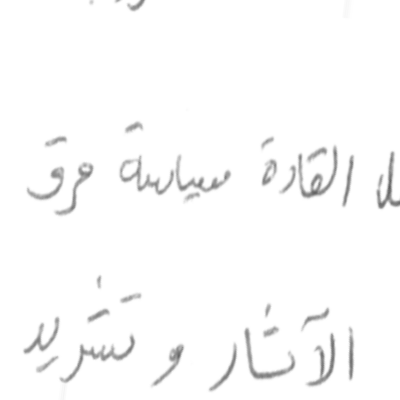 القادة سياسة حرق
الآثار و تشريد